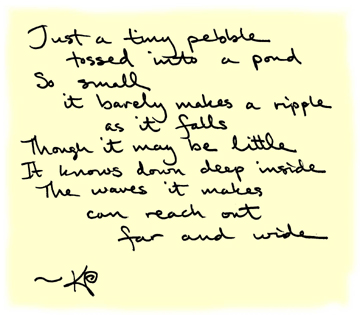 Just a tiny pebble
tossed into a pond
So small
it barely makes a ripple
as it falls
Though it may be little
It knows down deep inside
The waves it makes
can reach out
far and wide